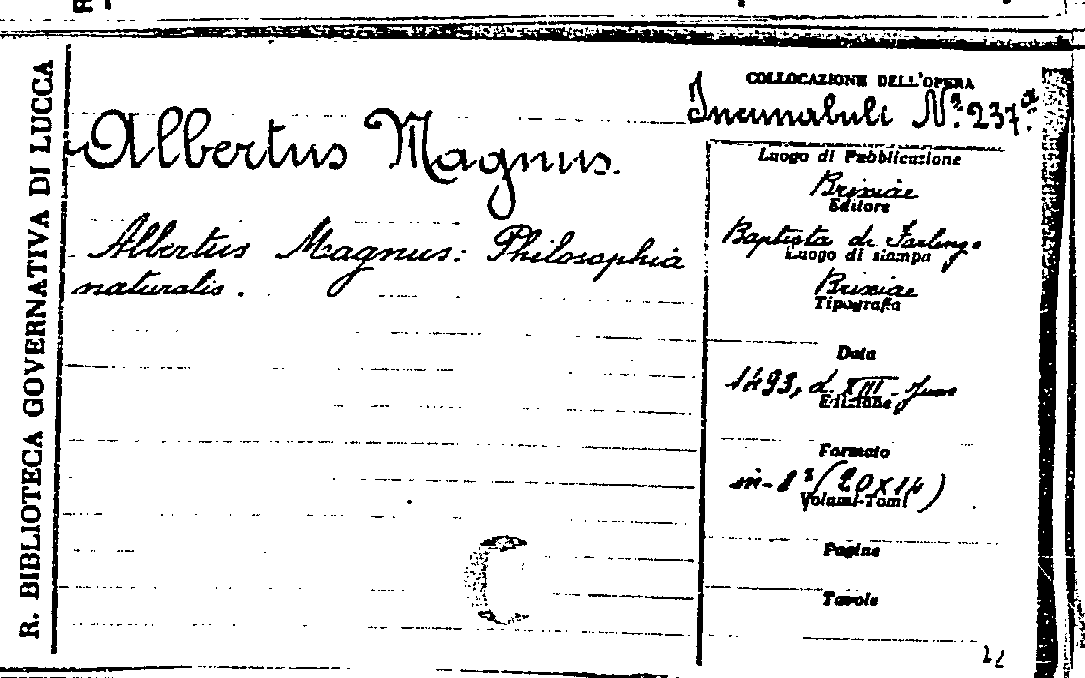 R. BIBLIOTECA GOVERNATIVA DI LUCCA
COLLOCAZIONE DELL'OPERA
Incunabuli Nº. 237.a
Albertus Magnus.
Albertus Magnus: Philosophia
naturalis.
Luogo di Pubblicazione
Brixiae
Editore
Baptista de Farlengo
Luogo di stampa
Brixiae
Tipografia
Data
1493, d. XIII. Junii
Edizione
Formato
in-8º (20x14)
Volumi-Tomi
Pagine
Tavole